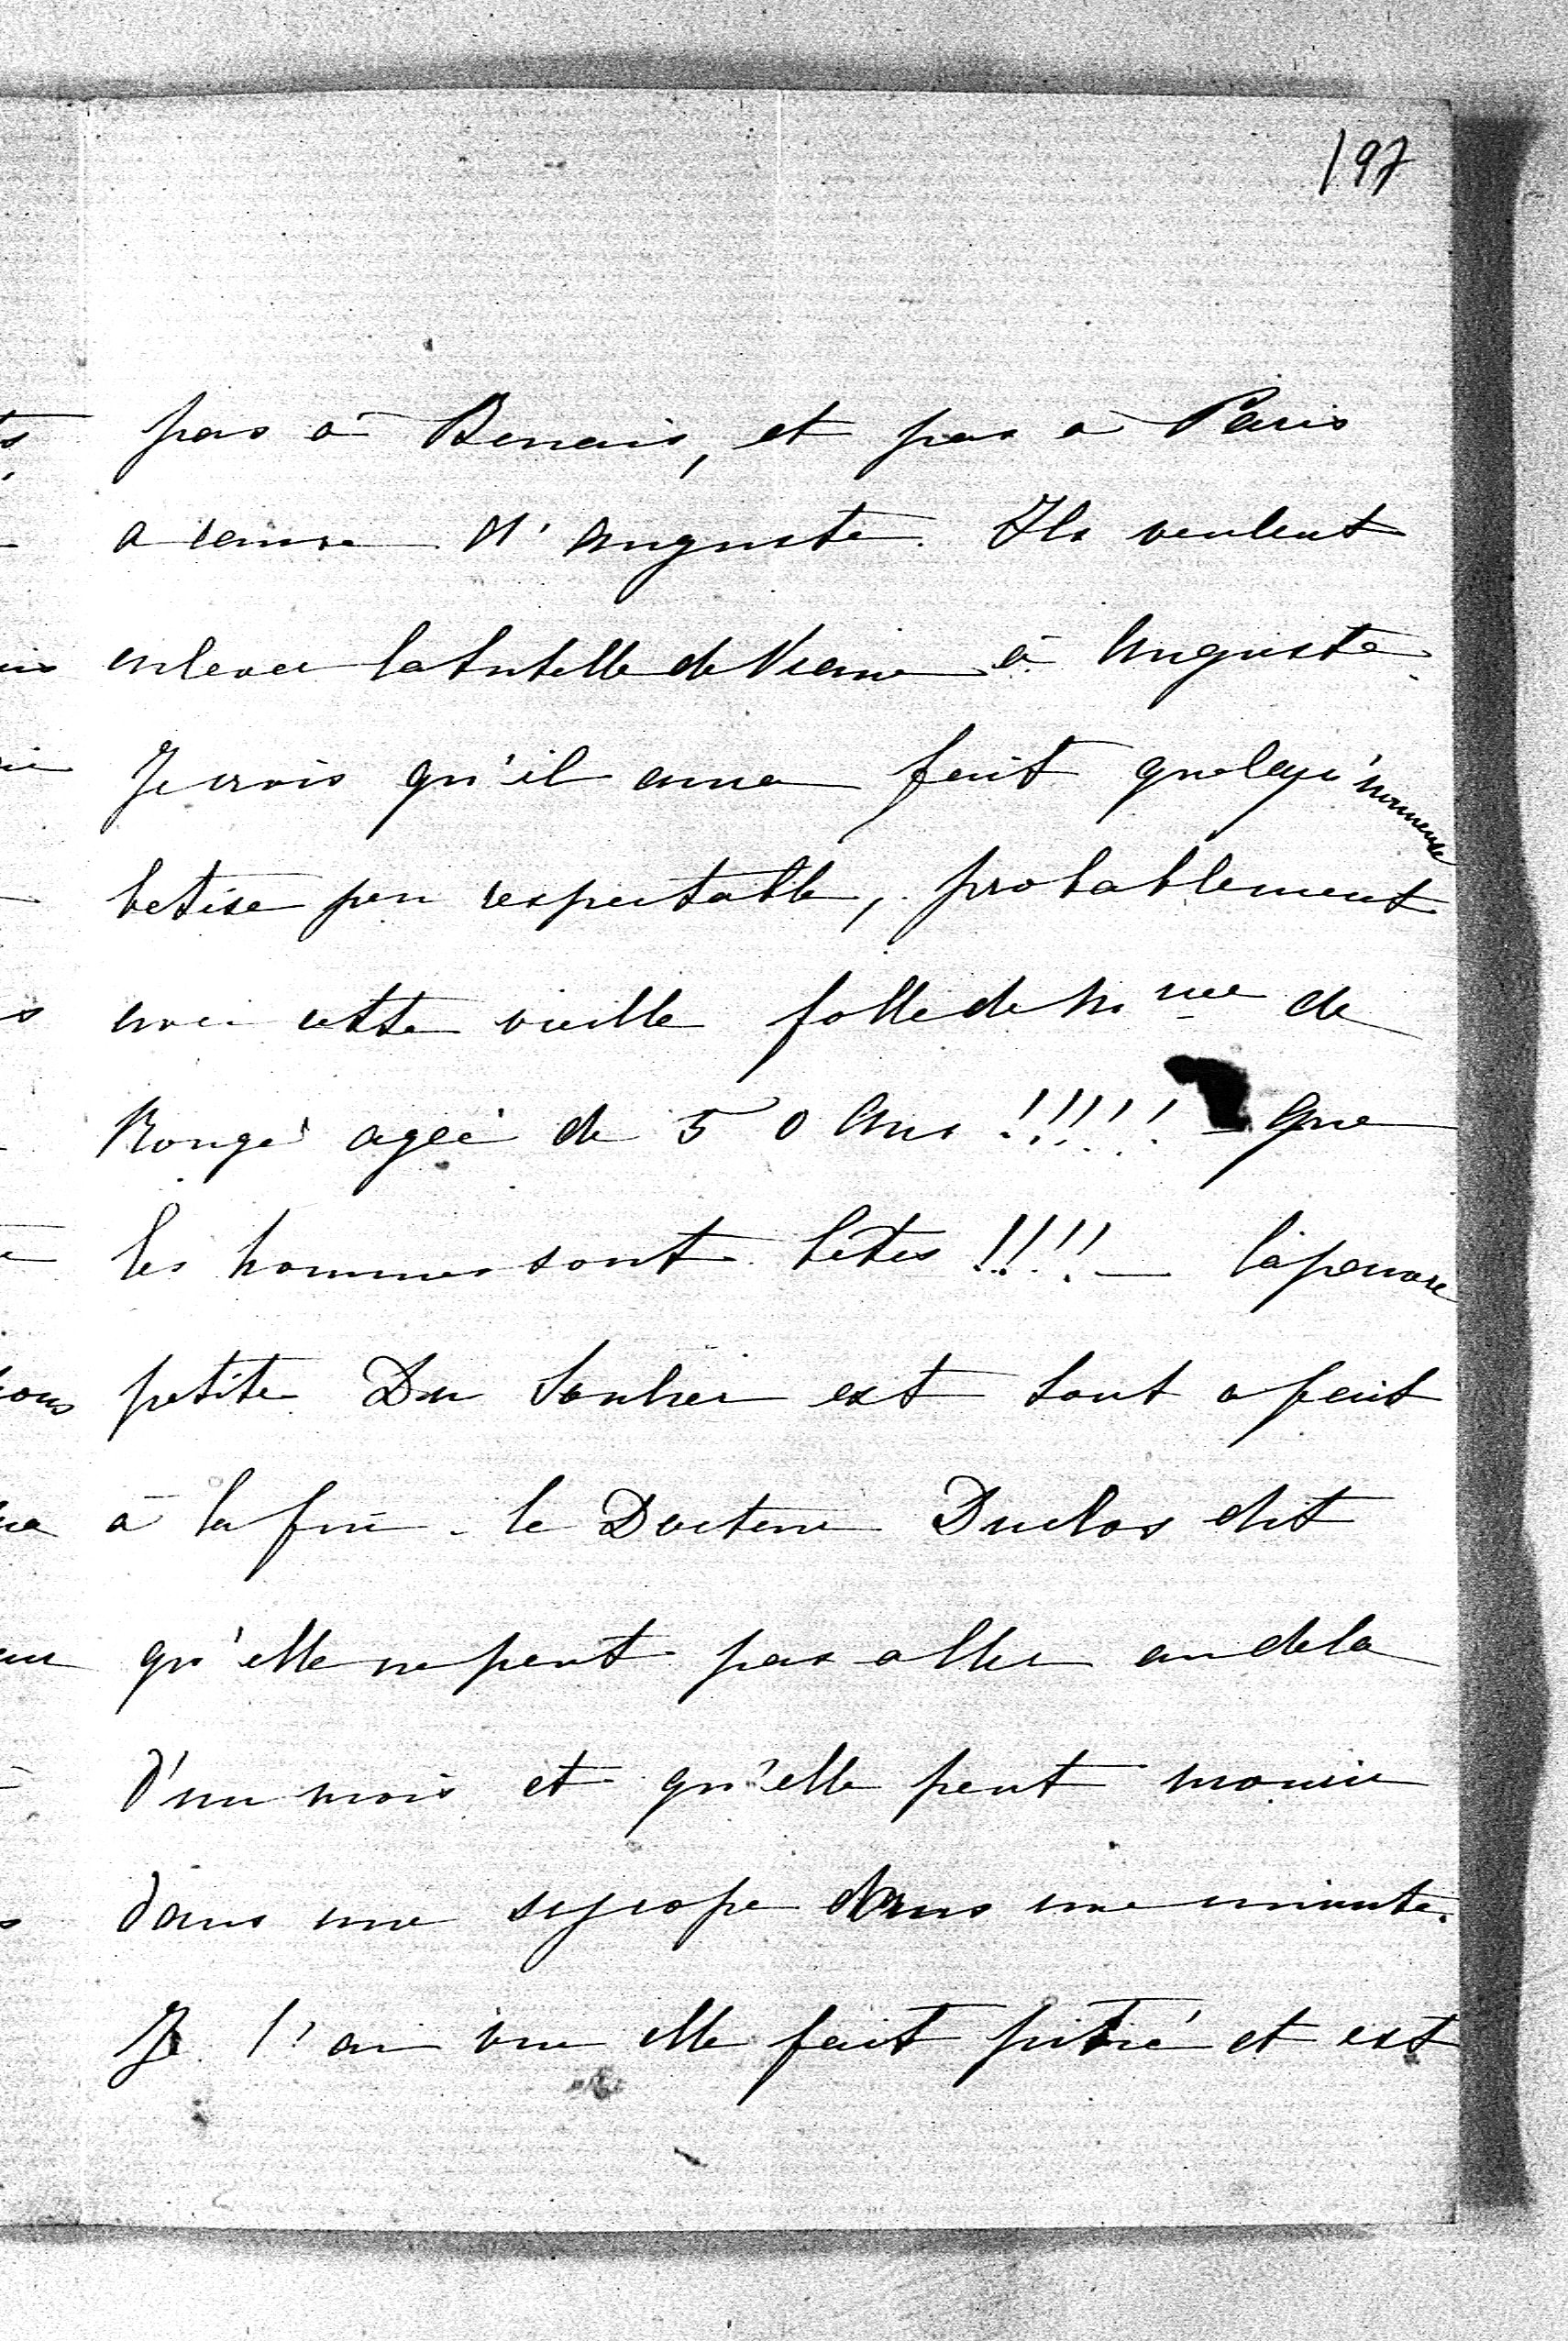 197
pas à Benais, et pas a Paris
a cause d'Auguste. Ils veulent
enlever la tutelle de à Auguste.
Je crois qu'il aura fait quelqu'
betise peu respectable, probablement
avec cette vieille folle de Mme de
Rougé agée de 50 ans !!!!! - que
les hommes sont bêtes !!!! — la pauvre
petite Du est tout a fait
à la fin - le Docteur Duclos dit
qu'elle ne peut pas aller au dela
d'un mois et qu'elle peut mourir
dans une sycope dans une minute.
Je l'ai vue elle fait pitié et est